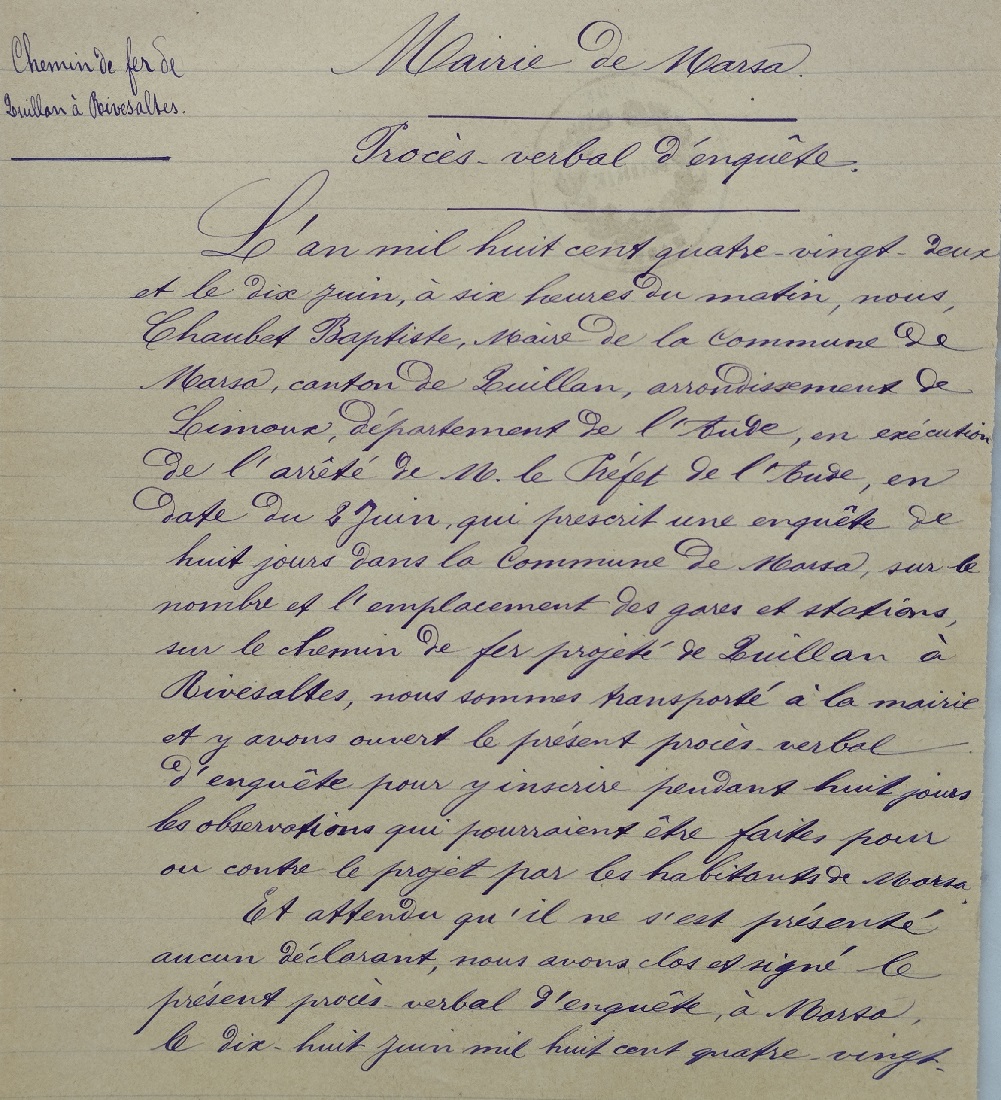 Chemin de fer de
Quillan à Rivesaltes.
Mairie de Marsa.
Procès-verbal d'enquête.
L'an mil huit cent quatre-vingt-deux
et le dix juin, à six heures du matin, nous,
Chaubet Baptiste, Maire de la Commune de
Marsa, canton de Quillan, arrondissement de
Limoux, département de l'Aude, en exécution
de l'arrêté de M. le Préfet de l'Aude, en
date du 2 Juin, qui prescrit une enquête de
huit jours dans la Commune de Marsa, sur le
nombre et l'emplacement des gares et stations,
sur le chemin de fer projeté de Quillan à
Rivesaltes, nous sommes transporté à la mairie
et y avons ouvert le présent procès-verbal
d'enquête pour y inscrire pendant huit jours
les observations qui pourraient être faites pour
ou contre le projet par les habitants de Marsa.
Et attendu qu'il ne s'est présenté
aucun déclarant, nous avons clos et signé le
présent procès-verbal d'enquête, à Marsa,
le dix-huit juin mil huit cent quatre-vingt-